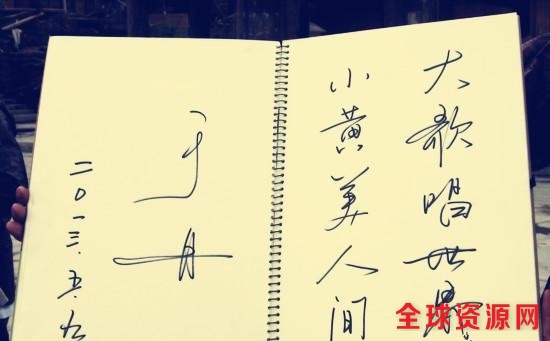 大歌唱世界
小黄美人间
于丹
二〇一三.五.九
全球资源网